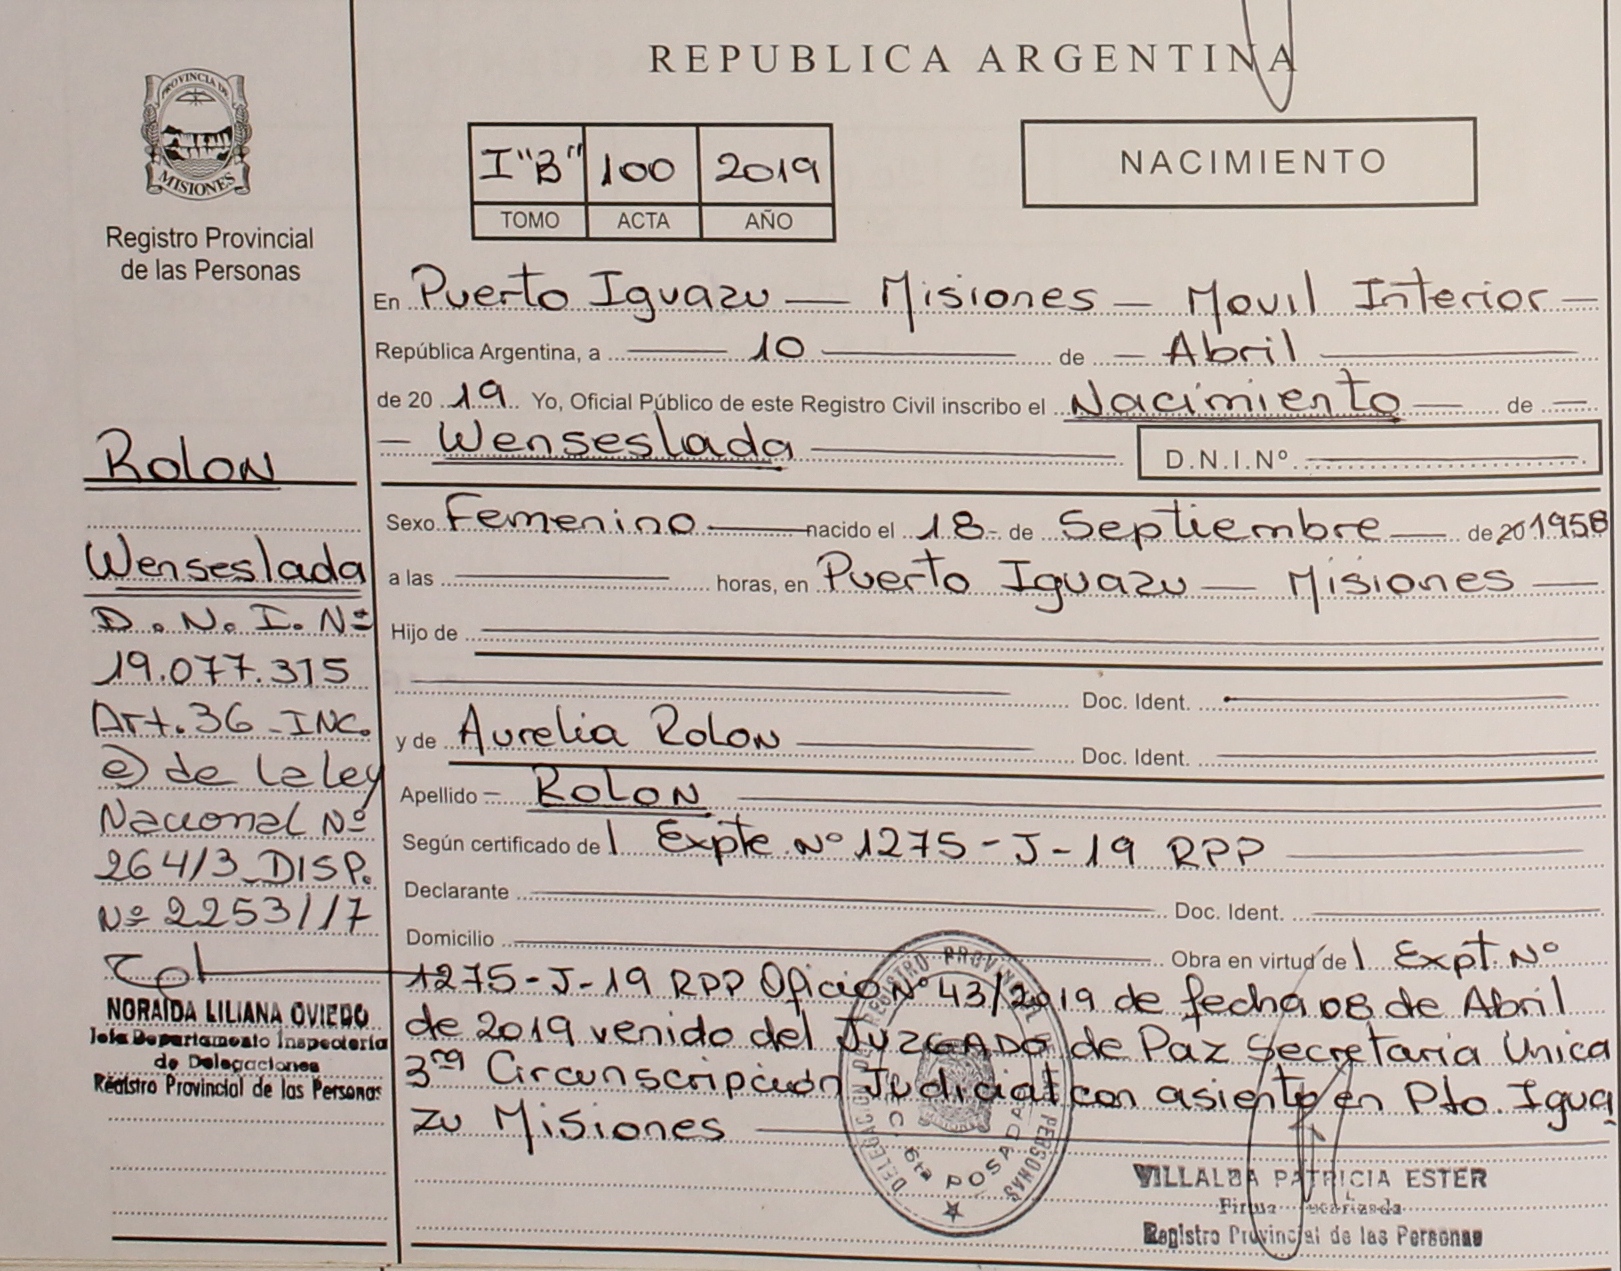 PROVINCIA DE
MISIONES
Registro Provincial
de las Personas
REPUBLICA ARGENTINA
I "B" 100 2019
TOMO ACTA AÑO
NACIMIENTO
En Puerto Iguazu — Misiones — Movil Interior —
República Argentina, a 10 de Abril
de 2019 Yo, Oficial Público de este Registro Civil inscribo el Nacimiento — de —
— Wenseslada D.N.I.Nº
Sexo Femenino nacido el 18 de Septiembre — de 20 1958
a las horas, en Puerto Iguazu — Misiones —
Hijo de
Doc. Ident.
y de Aurelia Rolon Doc. Ident.
Apellido — Rolon
Según certificado de l Expte Nº 1275-J-19 RPP
Declarante Doc. Ident.
Domicilio Obra en virtud de l Expt. Nº
1275-J-19 RPP Oficio Nº 43/2019 de fecha 08 de Abril
de 2019 venido del JUZGADO de Paz Secretaria Unica
3ra Circunscripción Judicial con asiento en Pto. Igua
zu Misiones
Rolon
Wenseslada
D.N.I. Nº
19.077.315
Art. 36 - INC.
e) de la ley
Nacional Nº
264/3 DISP.
Nº 2253//7
NORAIDA LILIANA OVIEDO
Jefa Departamento Inspectoria
de Delegaciones
Registro Provincial de las Personas
REGISTRO PROVINCIAL DE LAS PERSONAS
6ta POSADAS
VILLALBA PATRICIA ESTER
Firma Autorizada
Registro Provincial de las Personas